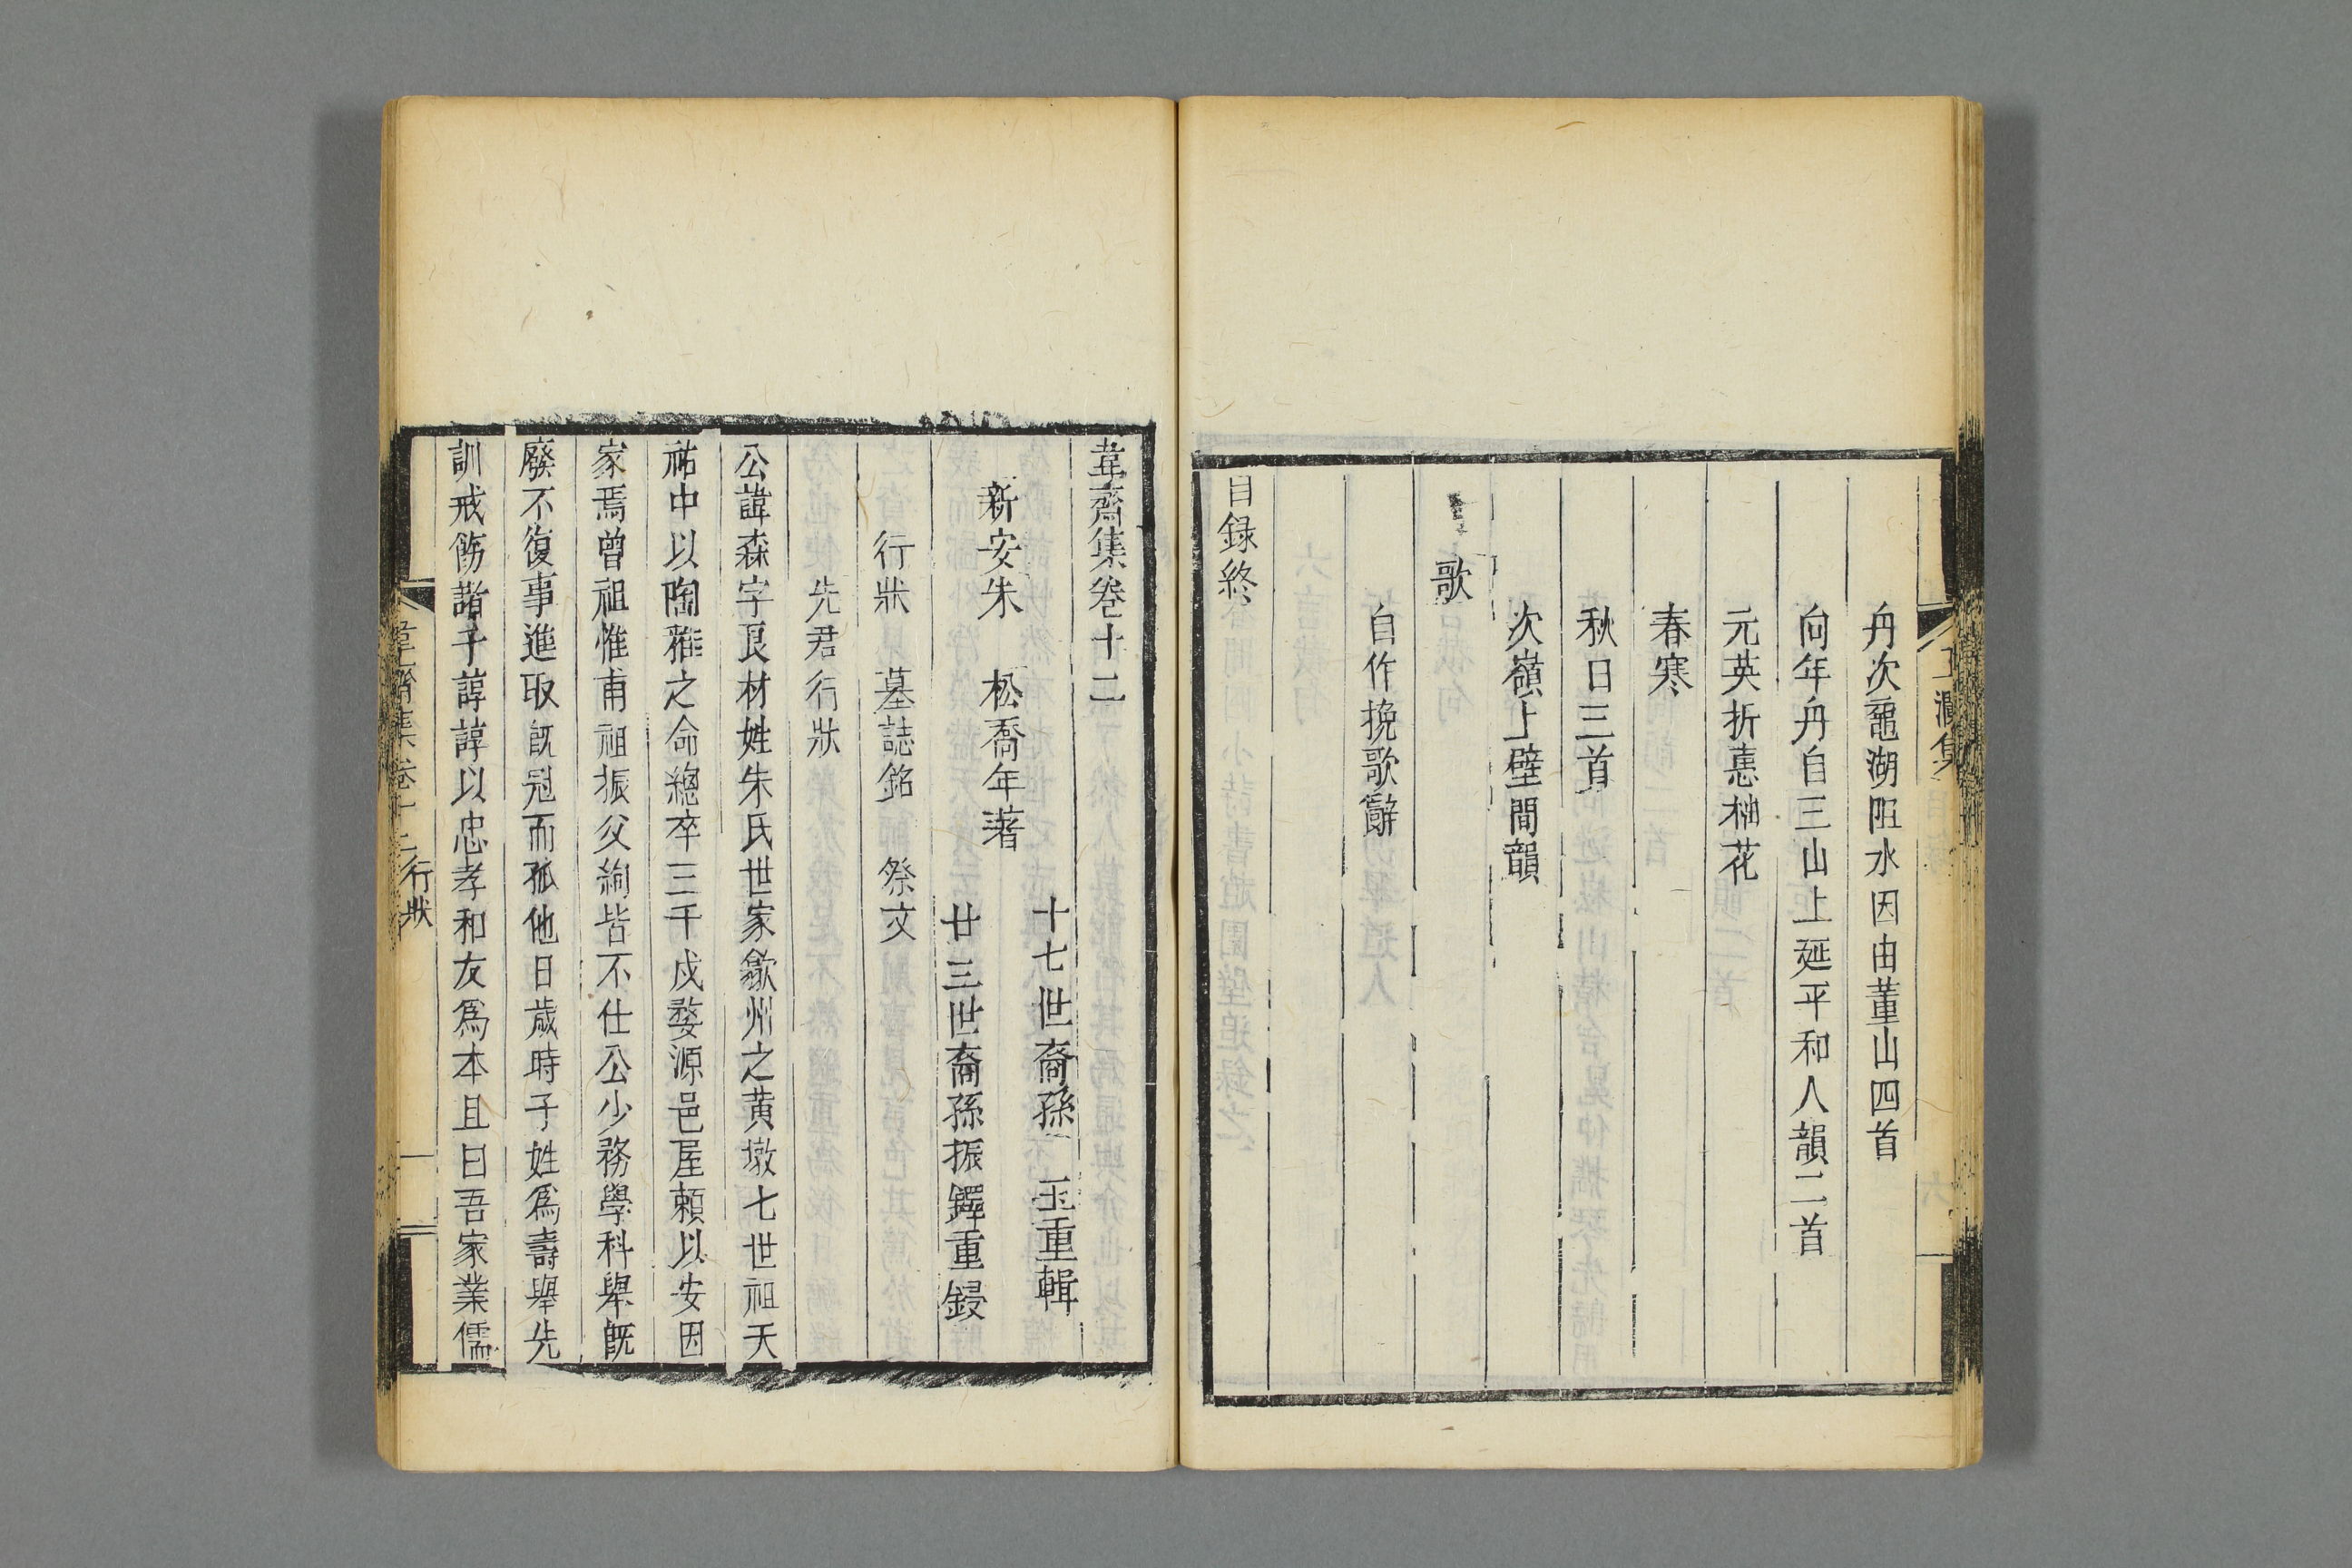 丹次黿湖阻水因由董山四首
向年丹自三山上延平和人韻二首
元英折惠柚花
春寒
秋日三首
次嶺上壁間韻
歌
自作挽歌辭
目録終
韋齋集卷十二
十七世裔孫 玉重輯
新安朱 松喬年著
廿三世裔孫振鐸重鋟
行狀 墓誌銘 祭文
先君行狀
公諱森字良材姓朱氏世家歙州之黃墩七世祖天
祐中以陶雅之命總卒三千戍婺源邑屋賴以安因
家焉曾祖惟甫祖振父絢皆不仕公少務學科舉旣
廢不復事進取旣冠而孤他日歲時子姓爲壽舉先
訓戒飭諸子諄諄以忠孝和友爲本且曰吾家業儒
韋齋集卷十二 行狀 一